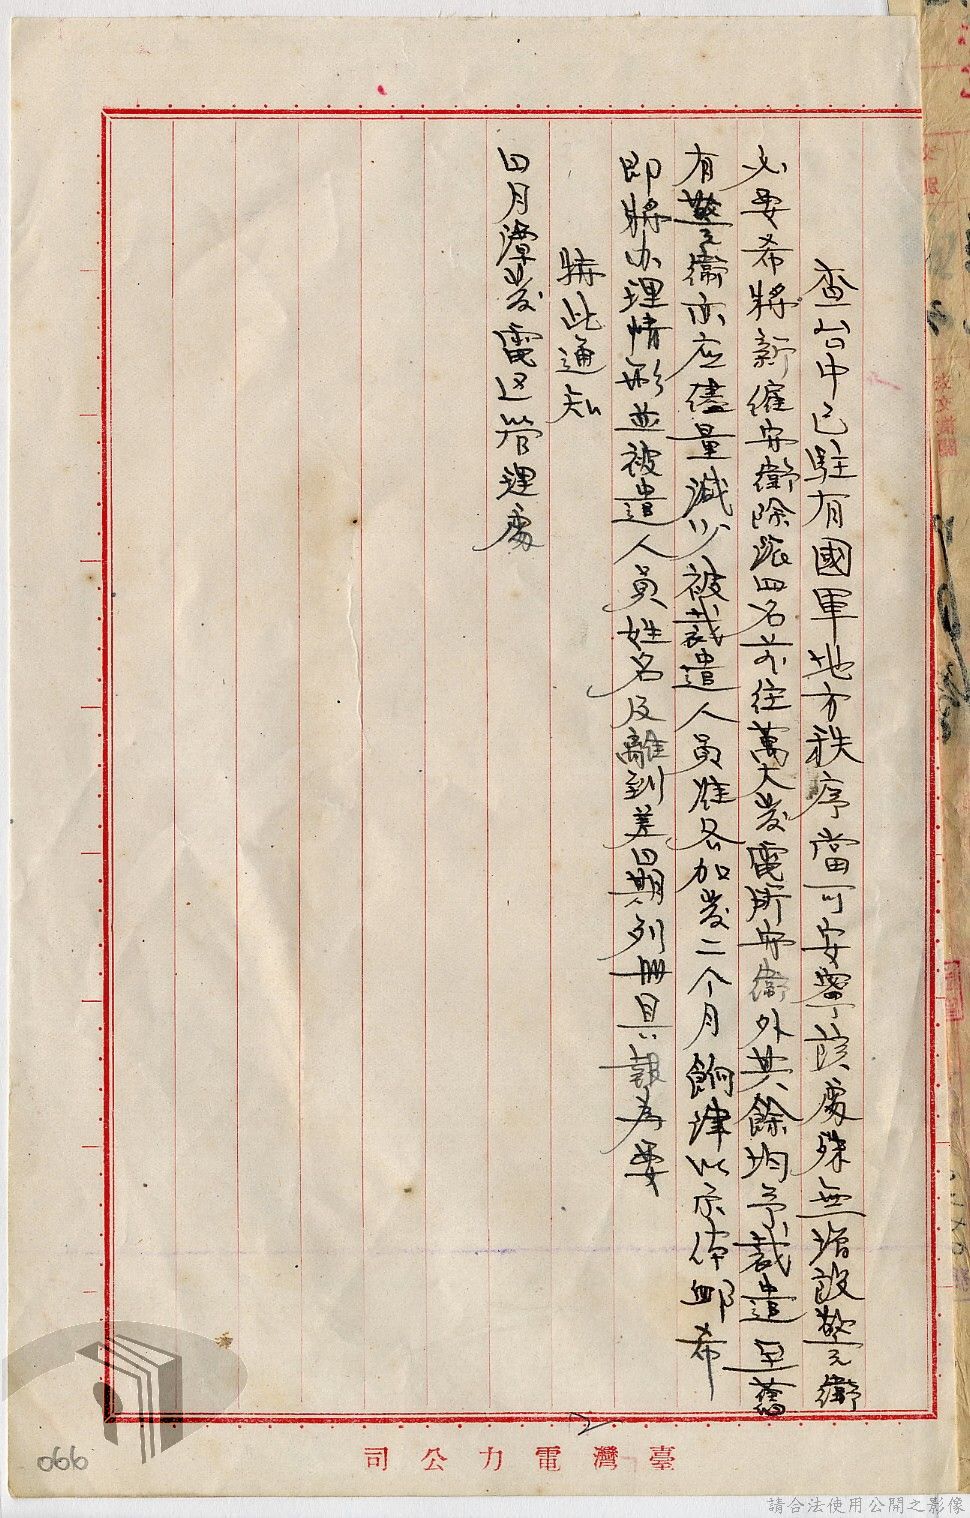 查台中已駐有國軍地方秩序當可安寧該處殊無增設警衛
必要希將新僱安衛除派四名前往萬大發電所安衛外其餘均予裁遣至舊
有警衛亦应儘量減少被裁遣人員准各加發二个月餉津以示体卹希
即將办理情形並被遣人員姓名及離到差日期列冊具報為要
特此通知
日月潭發電区管理處
2
臺灣電力公司
066
請合法使用公開之影像